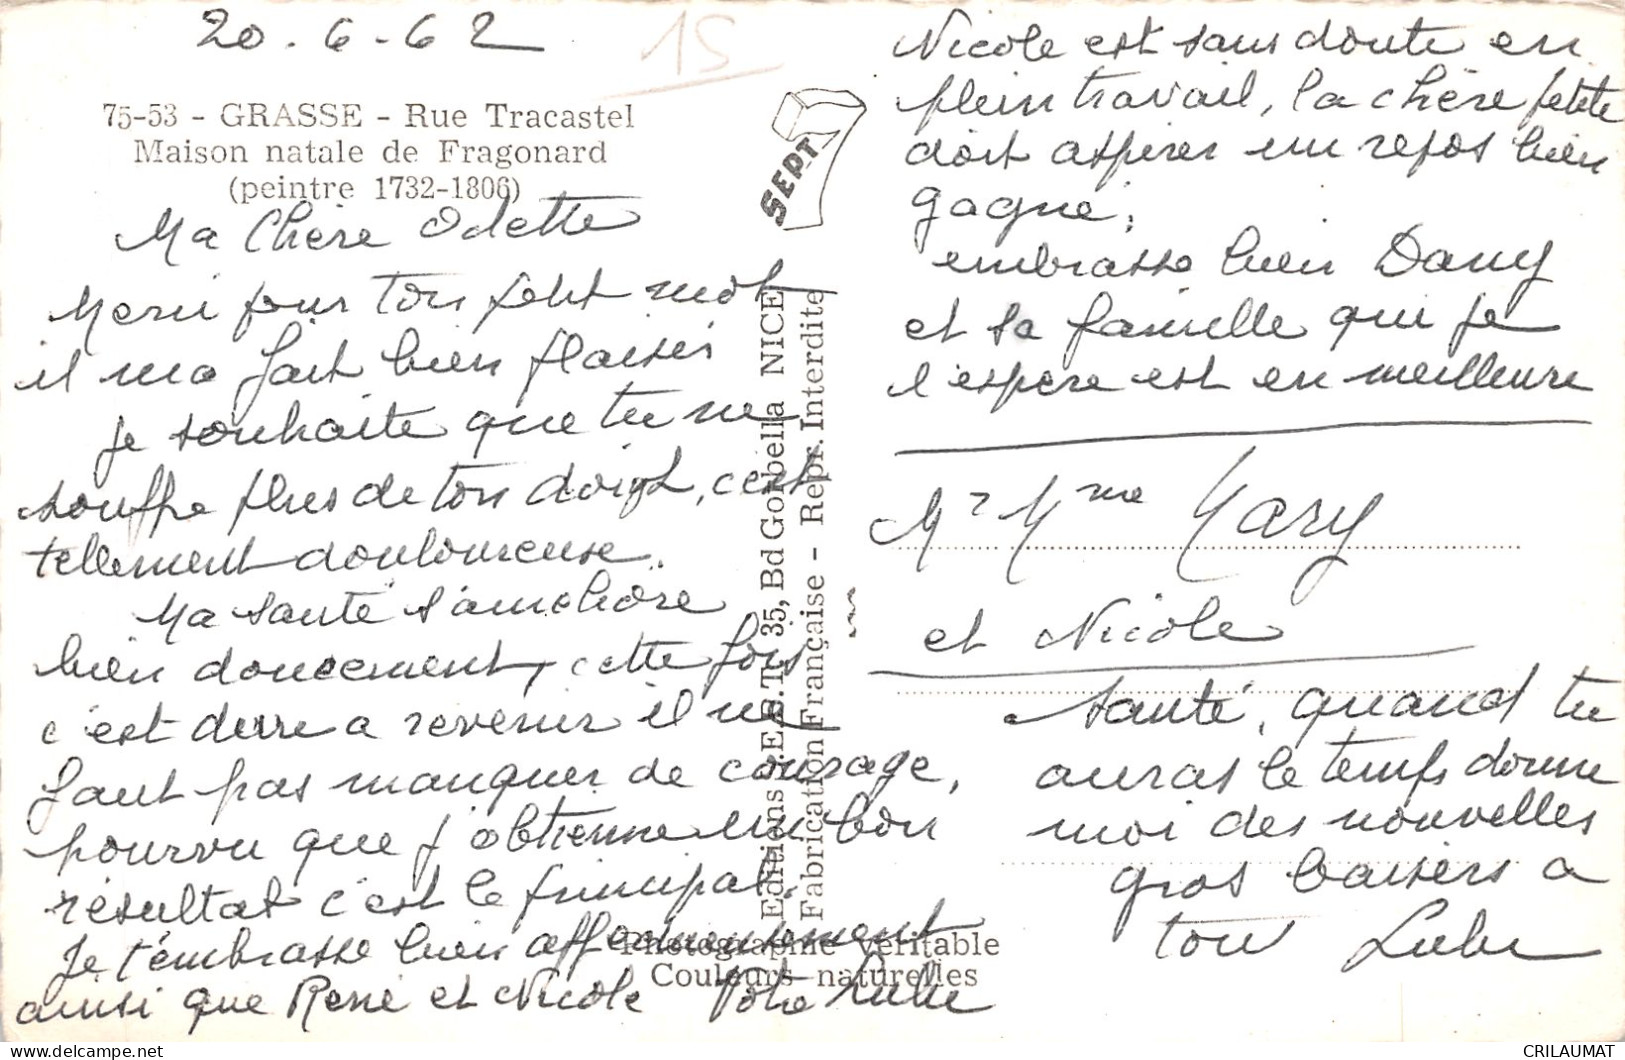 20.6-62
15
75-53 - GRASSE - Rue Tracastel
Maison natale de Fragonard
(peintre 1732-1806)
Ma Chère Odette
Merci pour ton petit mot
il m'a fait bien plaisir
je souhaite que tu ne
souffre plus de ton doigt, c'est
tellement douloureuse.
Ma santé s'améliore
bien doucement, cette fois
c'est dure a revenir il ne
faut pas manquer de courage,
pourvu que j'obtienne un bon
résultat c'est le principal.
Je t'embrasse bien affectueusement
ainsi que René et Nicole Lulu
SEPT
7
Editions S.E.P.T. 35, Bd Gorbella NICE
Fabrication Française - Repr. Interdite
Photographie véritable
Couleurs naturelles
Nicole est sans doute en
plein travail, la chère petite
doit aspirer un repos bien
gagné,
embrasse bien Dany
et sa famille qui je
l'espère est en meilleure
Mr Mme Mary
et Nicole
santé, quand tu
auras le temps donne
moi des nouvelles
gros baisers a
tous Lulu
CRILAUMAT